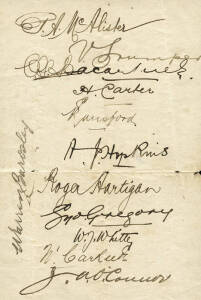 P. A. McAlister
V. Trumper
C. G. Macartney
H. Carter
Ransford
A. J. Hopkins
Roger Hartigan
Syd Gregory
W. J. Whitty
W. Carkeek
J. A. O'Connor
Warren Bardsley